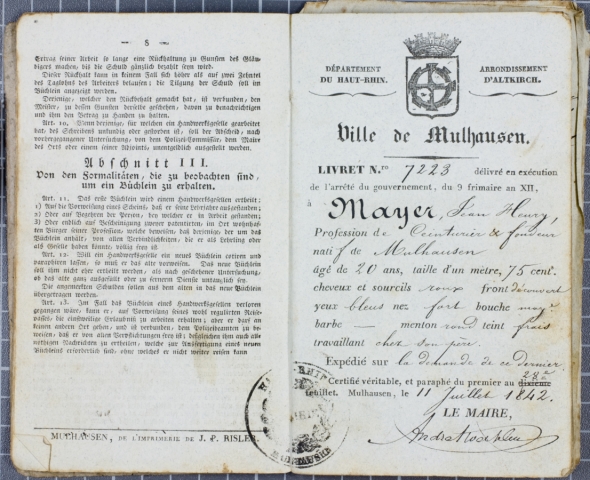 — 8 —
Ertrag seiner Arbeit so lange eine Rückhaltung zu Gunsten des Gläu-
bigers machen, bis die Schuld gänzlich bezahlt seyn wird.
Dieser Rückhalt kann in keinem Fall sich höher als auf zwei Zehntel
des Taglohns des Arbeiters belaufen: die Tilgung der Schuld soll im
Büchlein angezeigt werden.
Derjenige, welcher den Rückbehalt gemacht hat, ist verbunden, dem
Meister, zu dessen Gunsten derselbe geschehen, davon zu benachrichtigen
und ihm den Betrag zu Handen zu halten.
Art. 10. Wenn derjenige, für welchen ein Handwerksgeselle gearbeitet
hat, des Schreibens unkundig oder gestorben ist, soll der Abschied, nach
vorhergegangener Untersuchung, von dem Polizei-Commissär, dem Maire
des Orts oder einem seiner Adjoints, unentgeldlich ausgestellt werden.
Abschnitt III.
Von den Formalitäten, die zu beobachten sind,
um ein Büchlein zu erhalten.
Art. 11. Das erste Büchlein wird einem Handwerksgesellen ertheilt:
1) Auf die Vorweisung eines Scheins, daß er seine Lehrjahre ausgestanden;
2) Oder auf Begehren der Person, bey welcher er in Arbeit gestanden;
3) Oder endlich auf Bescheinigung zweyer patentirten, im Ort wohnhaf-
ten Bürger seiner Profession, welche beweisen, daß derjenige, der um das
Büchlein anhält, von allen Verbindlichkeiten, die er als Lehrling oder
als Geselle haben könnte, völlig frei ist.
Art. 12. Will ein Handwerksgeselle ein neues Büchlein cotiren und
paraphiren lassen, so muß er das alte vorweisen. Das neue Büchlein
soll ihm nicht eher ertheilt werden, als nach geschehener Untersuchung,
ob das alte ganz ausgefüllt oder zu fernerm Dienste untauglich sey.
Die angemerkten Schulden sollen aus dem alten in das neue Büchlein
übergetragen werden.
Art. 13. Im Fall das Büchlein eines Handwerksgesellen verloren
gegangen wäre, kann er, auf Vorweisung seines wohl regulirten Reise-
passes, die einstweilige Erlaubniß zu arbeiten erhalten; aber er darf an
keinen andern Ort gehen, und ist verbunden, dem Polizeibeamten zu be-
weisen, daß er von allen Verpflichtungen frei ist; desgleichen ihm auch alle
nöthigen Nachrichten zu ertheilen, welche zur Ausfertigung eines neuen
Büchleins erforderlich sind, ohne welches er nicht weiter reisen kann
MULHAUSEN, DE L'IMPRIMERIE DE J. P. RISLER.
DÉPARTEMENT
DU HAUT-RHIN.
ARRONDISSEMENT
D'ALTKIRCH.
Ville de Mulhausen.
LIVRET N.ro 7223 délivré en exécution
de l'arrêté du gouvernement, du 9 frimaire an XII,
à Mayer, Jean Henry,
Profession de Ceinturier & fondeur
natif de Mulhausen
âgé de 20 ans, taille d'un mètre, 75 cent.
cheveux et sourcils roux front découvert
yeux bleus nez fort bouche moy.
barbe — menton rond teint frais
travaillant chez son père.
Expédié sur la demande de ce dernier
Certifié véritable, et paraphé du premier au dixième 28e
feuillet. Mulhausen, le 11 Juillet 1842.
LE MAIRE,